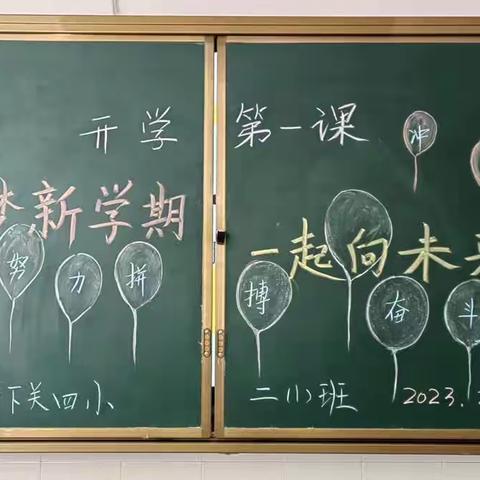 开学第一课
梦新学期
一起向未来
努力拼搏奋斗
冲
下关四小
二(1)班
2023.